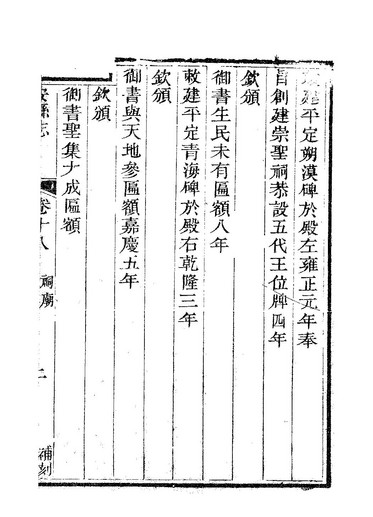 建平定朔漠碑於殿左雍正元年奉
旨創建崇聖祠恭設五代王位牌四年
欽頒
御書生民未有匾額八年
敕建平定青海碑於殿右乾隆三年
欽頒
御書與天地參匾額嘉慶五年
欽頒
御書聖集大成匾額
縣志
卷十八
祠廟
二
補刻